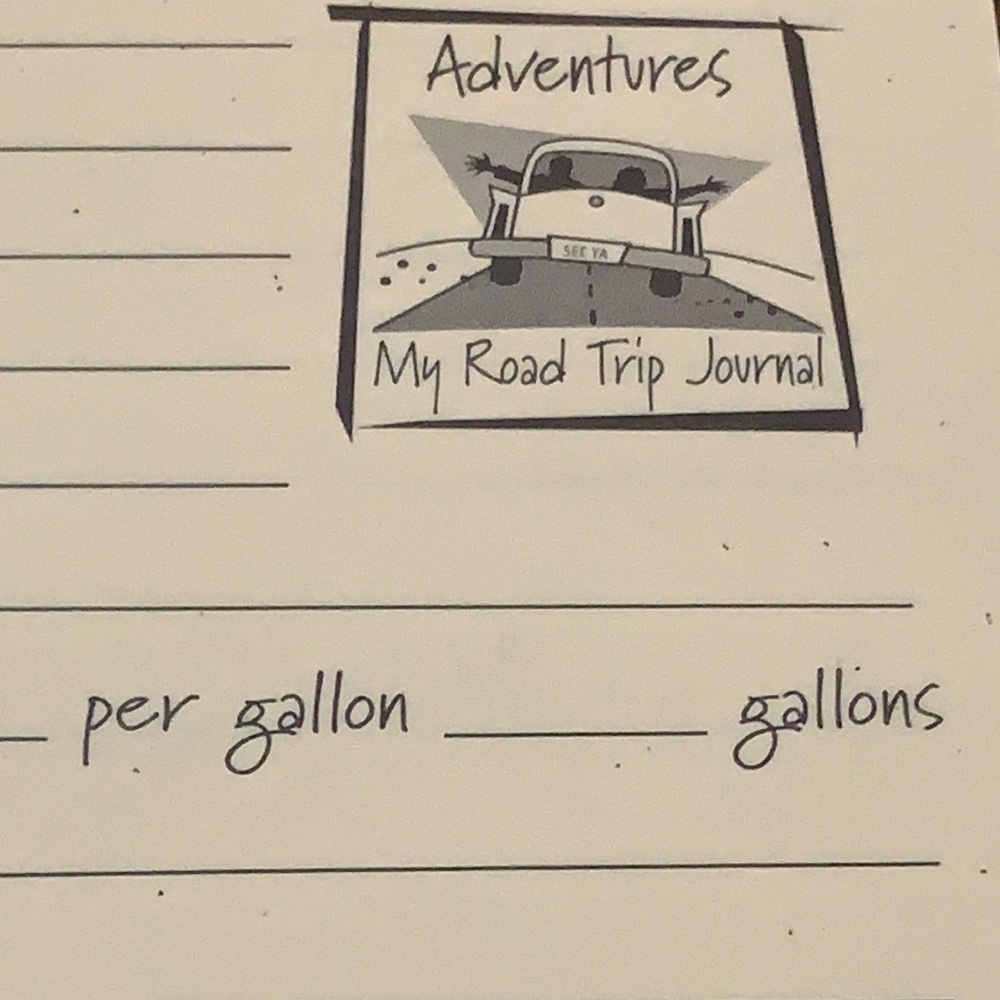 Adventures
SEE YA
My Road Trip Journal
per gallon gallons